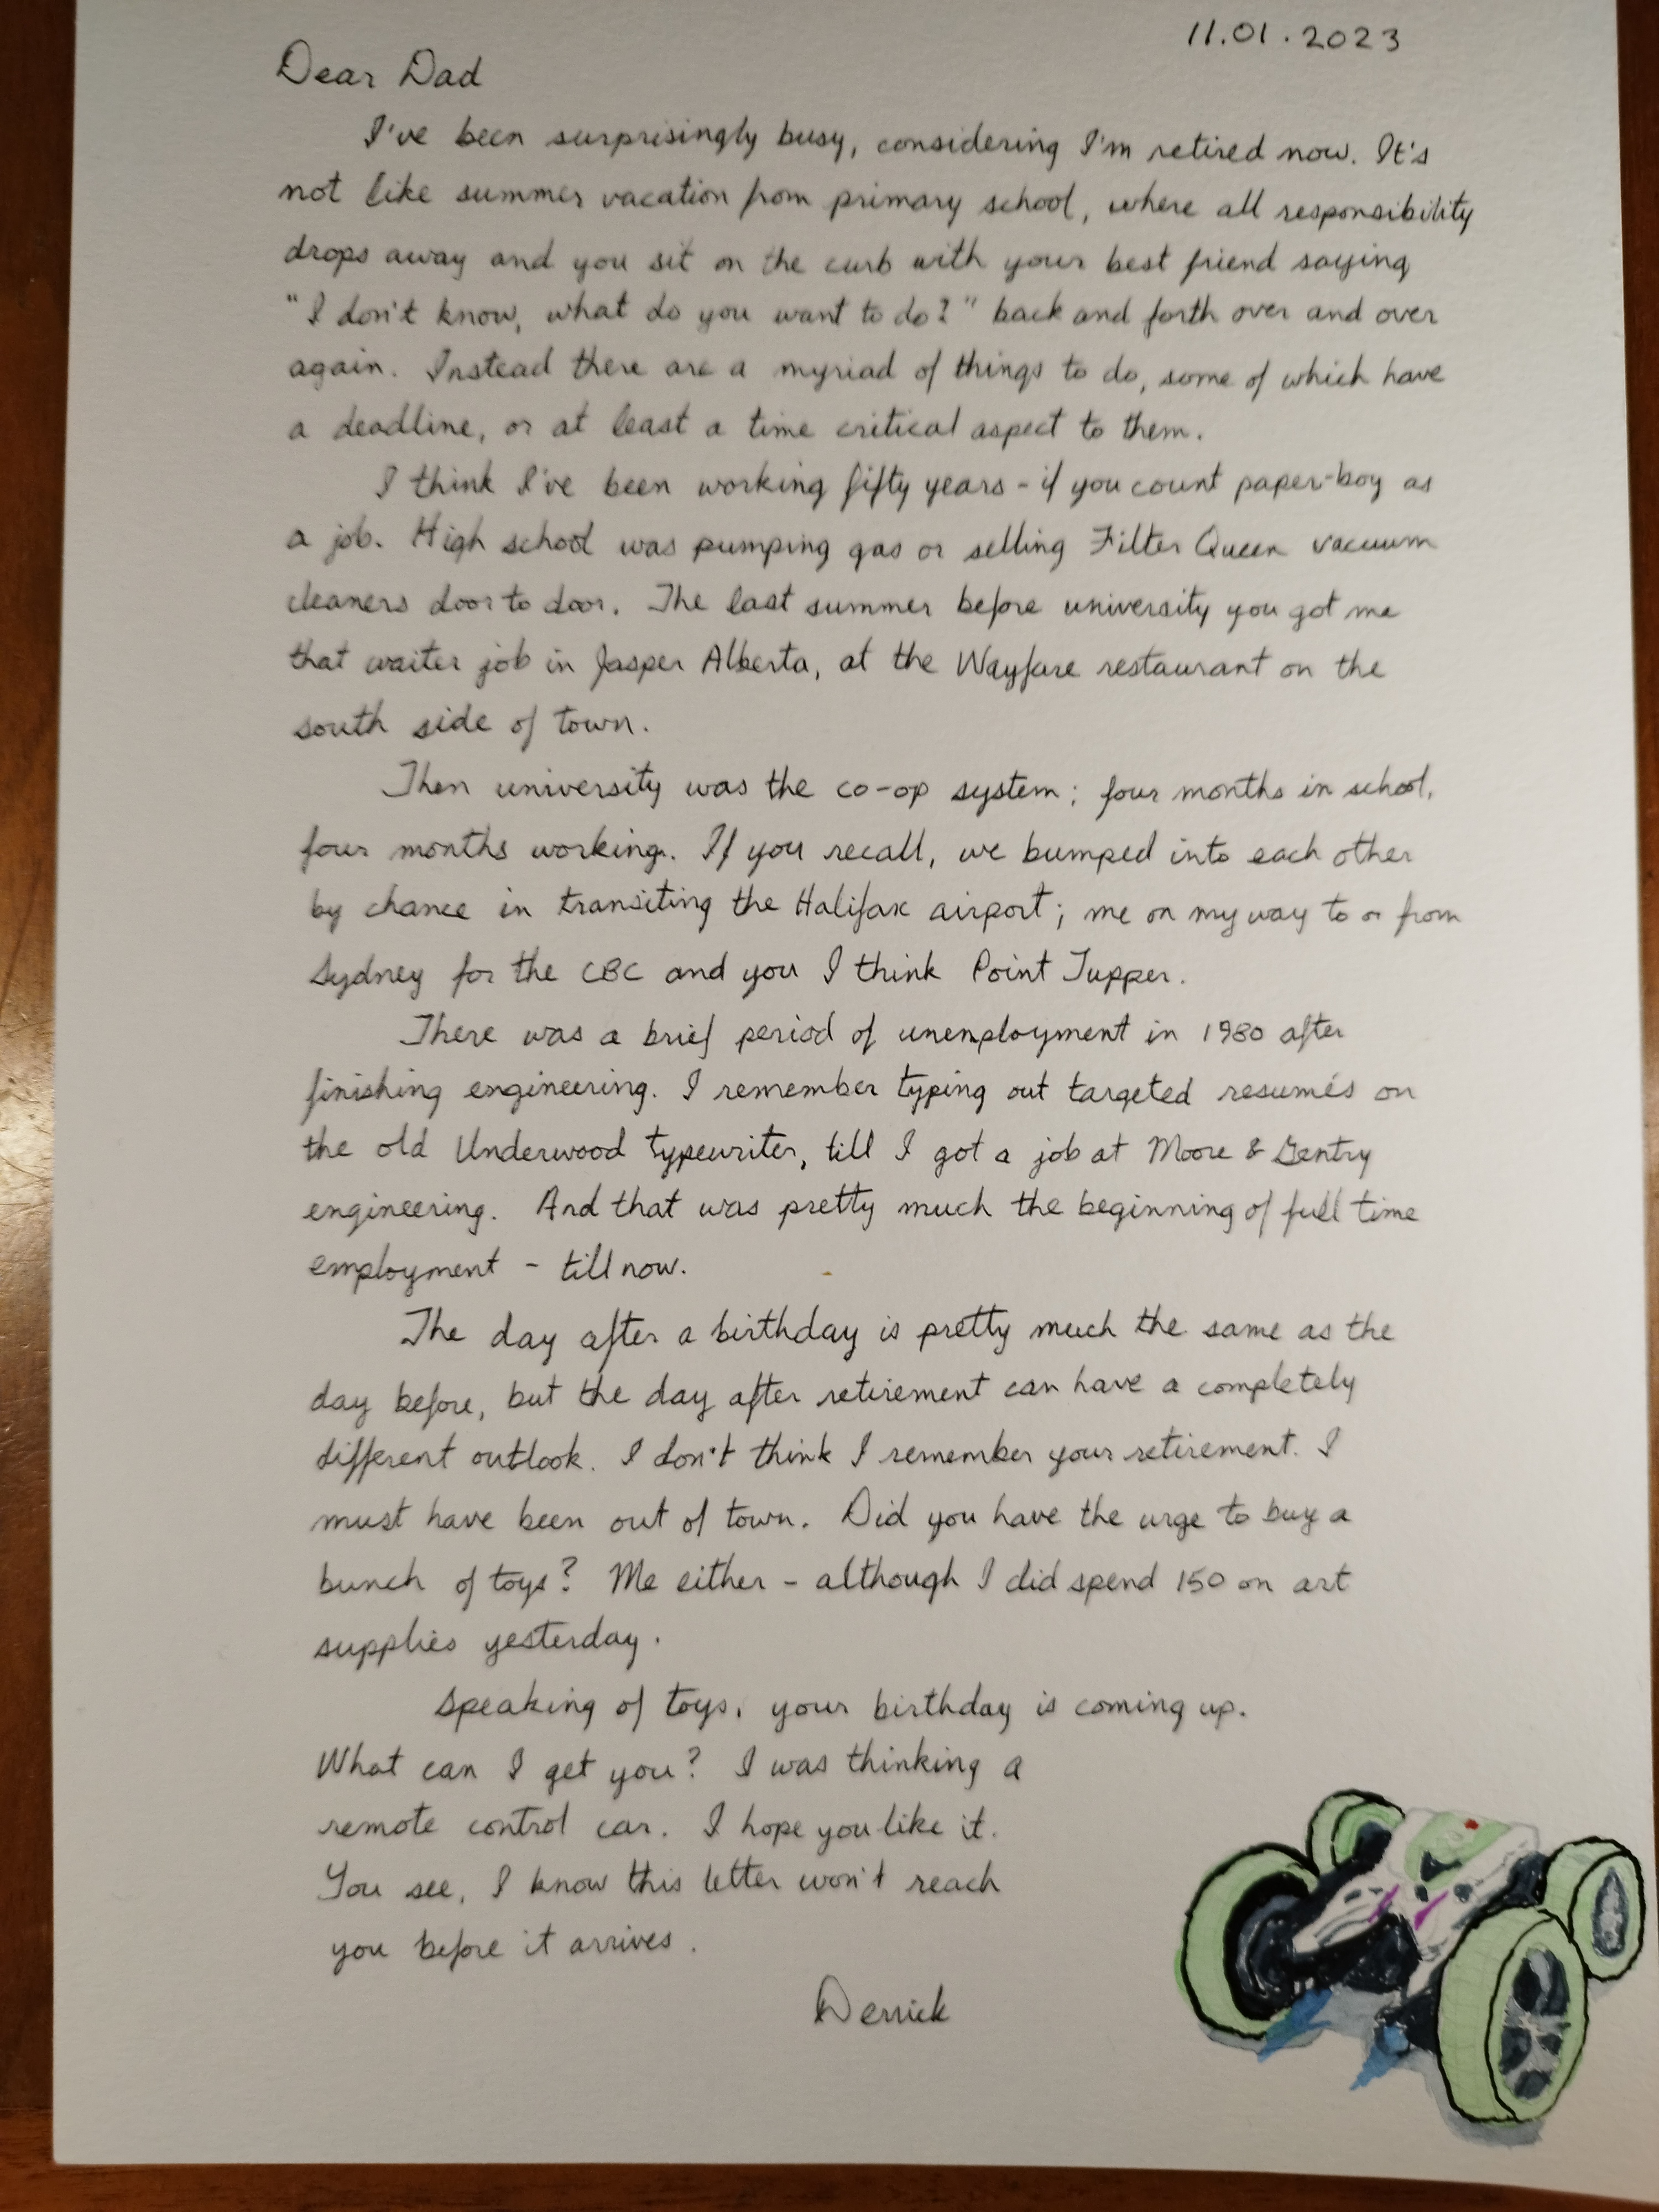 11.01.2023
Dear Dad
I've been surprisingly busy, considering I'm retired now. It's
not like summer vacation from primary school, where all responsibility
drops away and you sit on the curb with your best friend saying
"I don't know, what do you want to do?" back and forth over and over
again. Instead there are a myriad of things to do, some of which have
a deadline, or at least a time critical aspect to them.
I think I've been working fifty years - if you count paper-boy as
a job. High school was pumping gas or selling Filter Queen vacuum
cleaners door to door. The last summer before university you got me
that waiter job in Jasper Alberta, at the Wayfare restaurant on the
south side of town.
Then university was the co-op system; four months in school,
four months working. If you recall, we bumped into each other
by chance in transiting the Halifax airport; me on my way to or from
Sydney for the CBC and you I think Point Tupper.
There was a brief period of unemployment in 1980 after
finishing engineering. I remember typing out targeted resumés on
the old Underwood typewriter, till I got a job at Moore & Gentry
engineering. And that was pretty much the beginning of full time
employment - till now.
The day after a birthday is pretty much the same as the
day before, but the day after retirement can have a completely
different outlook. I don't think I remember your retirement. I
must have been out of town. Did you have the urge to buy a
bunch of toys? Me either - although I did spend 150 on art
supplies yesterday.
Speaking of toys, your birthday is coming up.
What can I get you? I was thinking a
remote control car. I hope you like it.
You see, I know this letter won't reach
you before it arrives.
Derrick